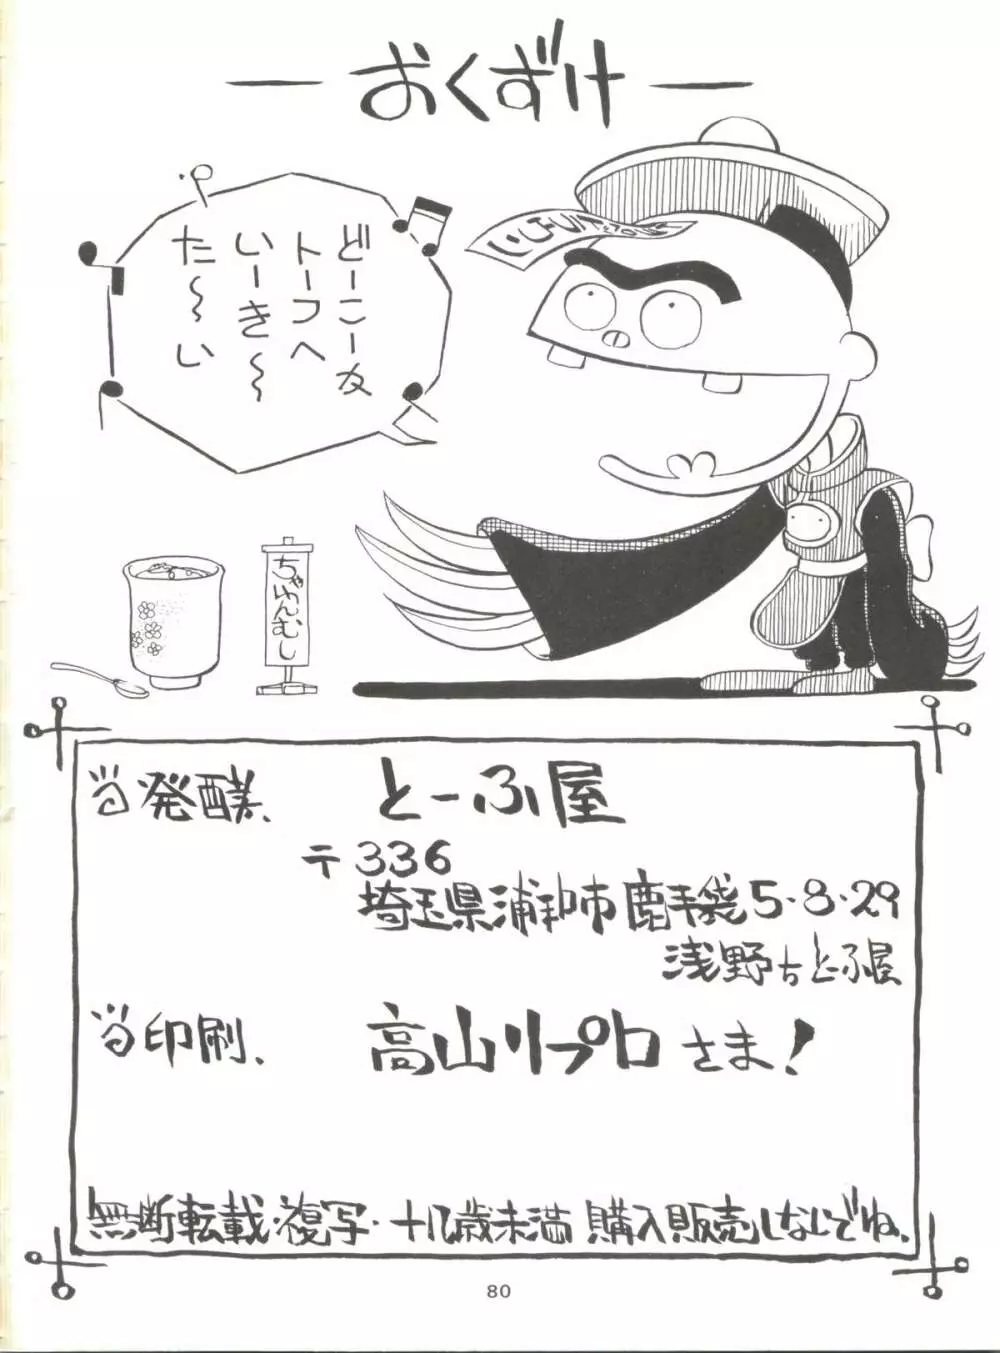 おくずけ
どーこーか
トーフへ
いーき〜〜
た〜〜い
ちゃわんむし
発酵、 とーふ屋
〒336
埼玉県浦和市鹿手袋5・8・29
浅野方とーふ屋
印刷、 高山リプロさま!
無断転載・複写・十八歳未満購入販売しないでね、
80